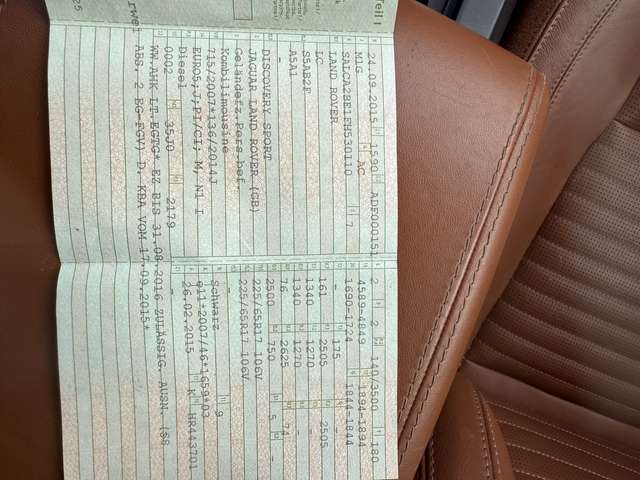 Teil I
24.09.2015 1590 ADF000151
M1G AC
SALCA2BE1FH530110 7
LAND ROVER
LC
S5AB2F
A5A1
-
DISCOVERY SPORT
JAGUAR LAND ROVER (GB)
Geländefz.Pers.bef.
Kombilimousine
715/2007*136/2014J
EURO5;J;PI/CI; M, N1 I
Diesel
0002 35J0 2179
2 2 140/3500 180
4589-4849 1894-1894
1690-1724 1844-1844
- 135 - -
161 2505 2505
1340 1270 -
1340 1270 -
76 2625 74
2500 750 5 -
225/65R17 106V
225/65R17 106V
-
Schwarz 9
e11*2007/46*1659*03
26.02.2015 K HR443701
-
WW.AHK LT.EGTG* EZ BIS 31.08.2016 ZULÄSSIG, AUSN. (§8
ABS. 2 EG-FGV) D. KBA VOM 17.09.2015*